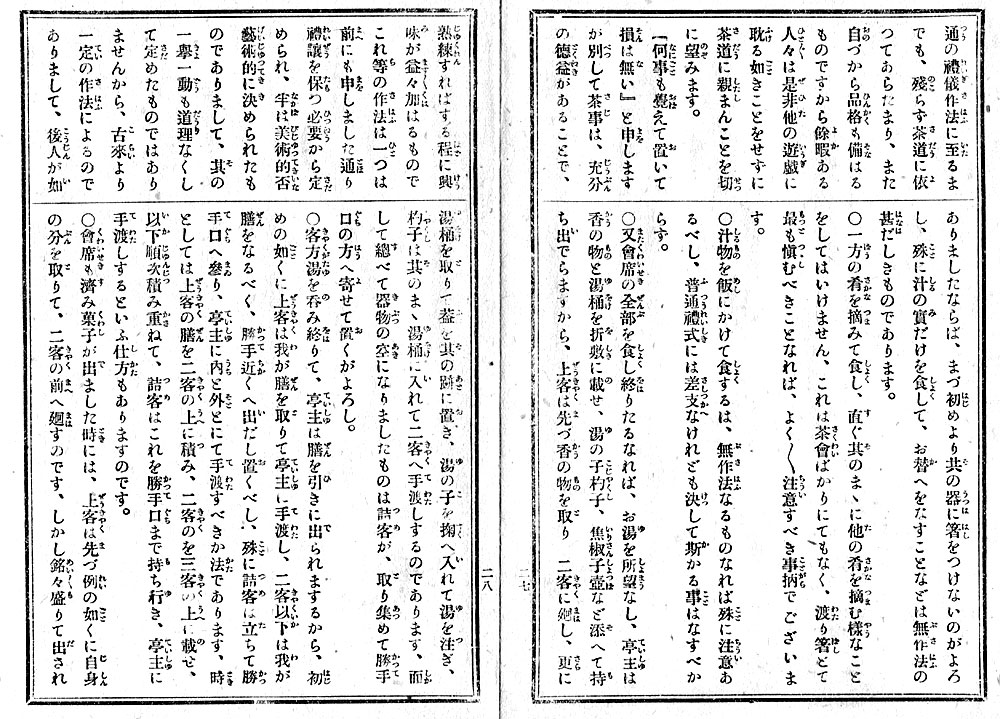 通の禮儀作法に至るま
でも、殘らず茶道に依
つてあらたまり、また
自づから品格も備はる
ものですから餘暇ある
人々は是非他の遊戲に
耽る如きことをせずに
茶道に親まんことを切
に望みます。
「何事も覺えて置いて
損は無い」と申します
が別して茶事は、充分
の德益があることで、
ありましたならば、まづ初めより共の器に箸をつけないのがよろ
し、殊に汁の實だけを食して、お替へをなすことなどは無作法の
甚だしきものであります。
○一方の肴を摘みて食し、直ぐ其のまゝに他の肴を摘む樣なこと
をしてはいけません、これは茶會ばかりにてもなく、渡り箸とて
最も愼むべきことなれば、よく〳〵注意すべき事柄でございま
す。
○汁物を飯にかけて食するは、無作法なるものなれば殊に注意あ
るべし、普通禮式には差支なけれども決して斯かる事はなすべか
らず。
○又會席の全部を食し終りたるなれば、お湯を所望なし、亭主は
香の物と湯桶を折敷に載せ、湯の子杓子、焦椒子壺など添へて持
ち出でらますから、上客は先づ香の物を取り 二客に廻し、更に
二七
熟練すればする程に興
味が益々加はるもので
これ等の作法は一つは
前にも申しました通り
禮讓を保つ必要から定
められ、半は美術的否
藝術的に決められたも
のでありまして、其の
一擧一動も道理なくし
て定めたものではあり
ませんから、古來より
一定の作法によるので
ありまして、後人が如
湯桶を取りて蓋を其の跡に置き、湯の子を掬へ入れて湯を注ぎ、
杓子は其のまゝ湯桶に入れて二客へ手渡しするのであります、而
して總べて器物の空になりましたものは詰客が、取り集めて勝手
口の方へ寄せて置くがよろし。
○客方湯を呑み終りて、亭主は膳を引きに出られまするから、初
めの如くに上客は我が膳を取りて亭主に手渡し、二客以下は我が
膳をなるべく、勝手近くへ出だし置くべし、殊に詰客は立ちて勝
手口へ參り、亭主に內と外とにて手渡すべきか法であります、時
としては上客の膳を二客の上に積み、二客のを三客の上に載せ、
以下順次積み重ねて、詰客はこれを勝手口まで持ち行き、亭主に
手渡しするといふ仕方もありますのです。
○會席も濟み菓子が出ました時には、上客は先づ例の如くに自身
の分を取りて、二客の前へ廻すのです、しかし銘々盛りて出され
二八